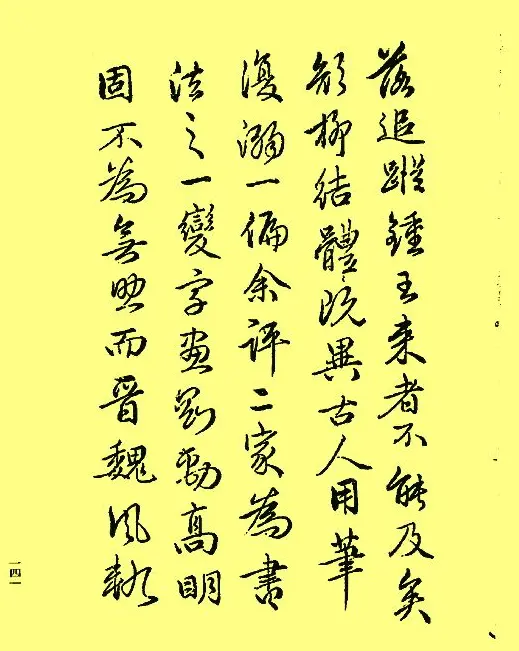 落追蹤鍾王来者不能及矣
顏柳結體既異古人用筆
復溺一偏余評二家為書
法之一變字畫剛勁高明
固不為無而晉魏風軌
一四一